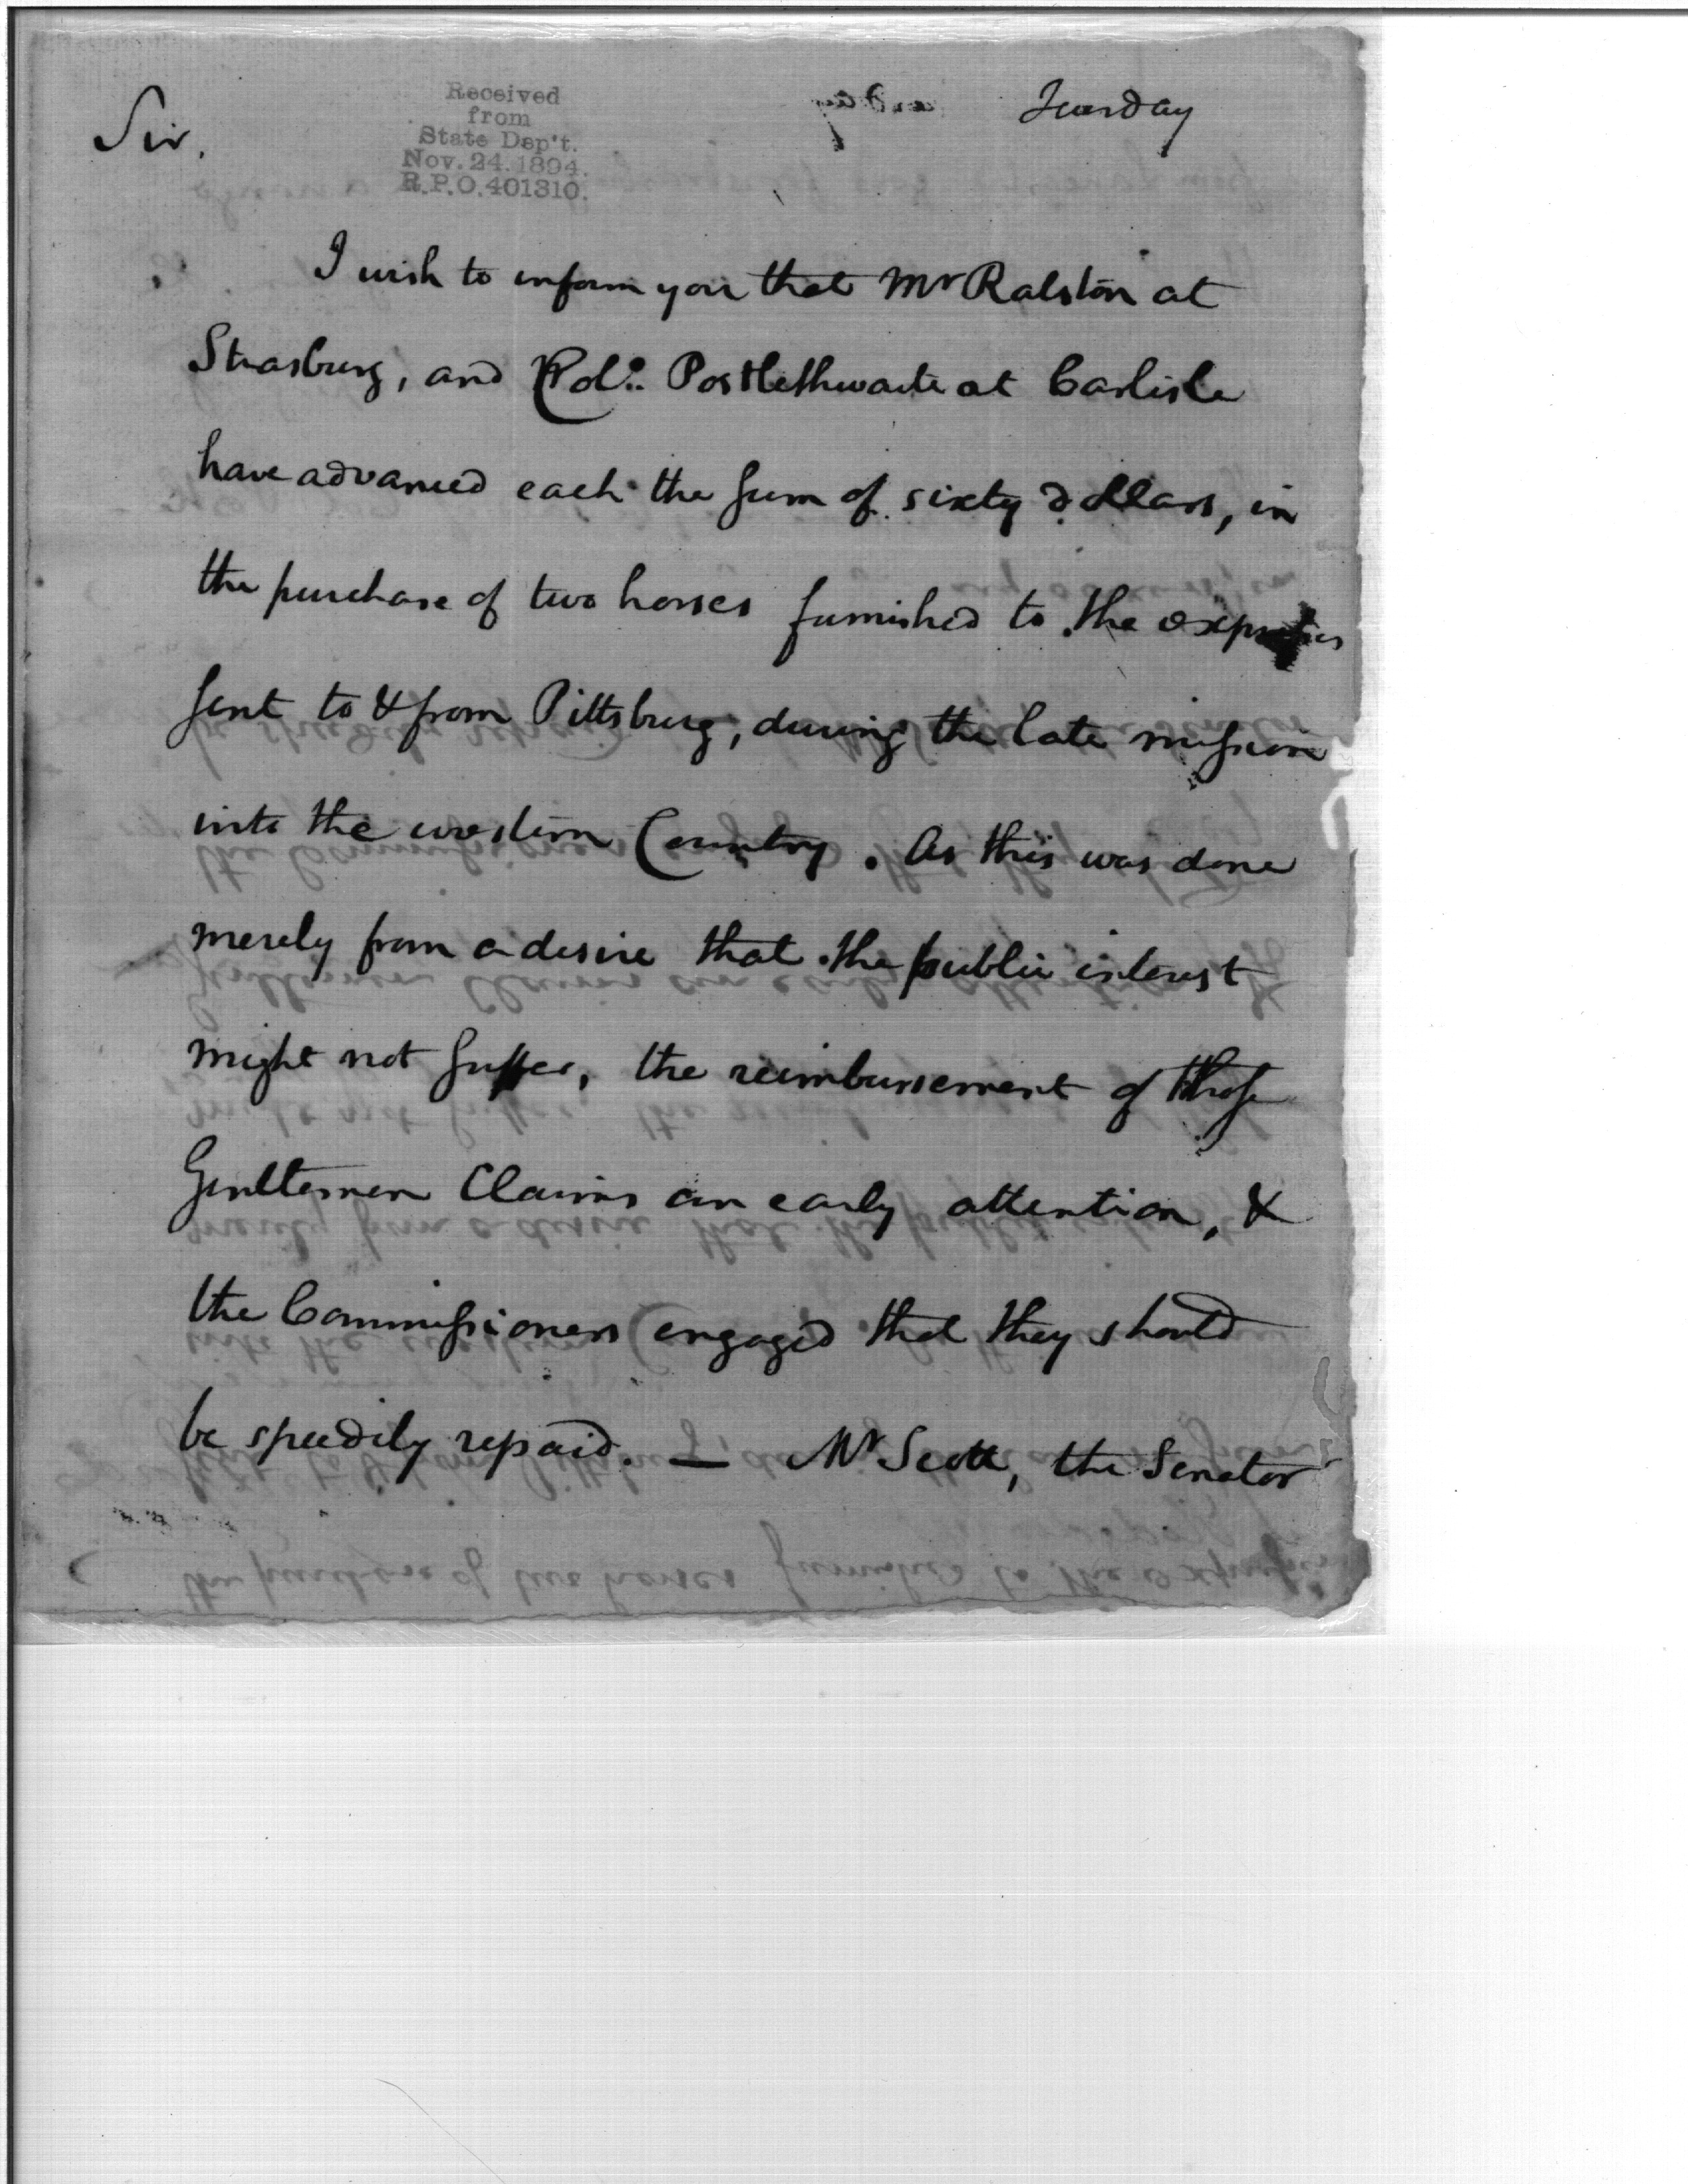 Sir.
Tuesday
Received
from
State Dep't.
Nov. 24. 1894.
R.P.O. 401310.
I wish to inform you that Mr Ralston at
Strasburg, and Col.. Postlethwaite at Carlisle
have advanced each the sum of sixty dollars, in
the purchase of two horses furnished to the expresses
sent to & from Pittsburg, during the late mission
into the western Country. As this was done
merely from a desire that the public interest
might not suffer, the reimbursement of those
Gentlemen Claims an early attention, &
the Commissioners engaged that they should
be speedily repaid. — Mr Scott, the Senator